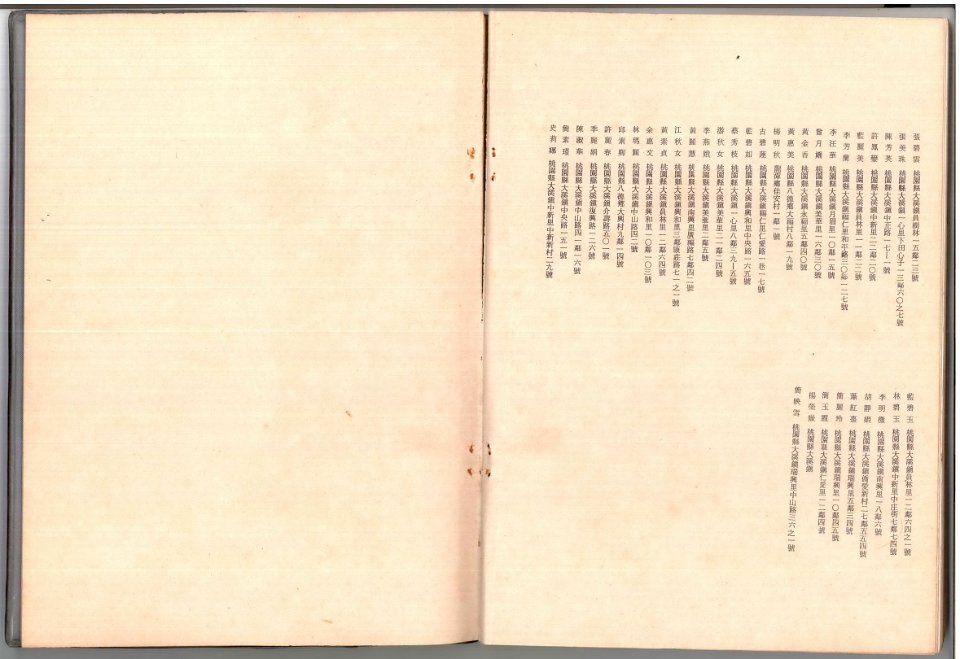 張碧雲 桃園縣大溪鎮員樹林一五鄰二三號
張美珠 桃園縣大溪鎮一心里下田心子一三鄰六〇之七號
陳芳英 桃園縣大溪鎮中正路一七—一號
許鳳 桃園縣大溪鎮中新里二二鄰二〇號
藍麗美 桃園縣大溪鎮員林里一一鄰二二號
李芳蘭 桃園縣大溪鎮福仁里和平路三〇鄰一二七號
李汪華 桃園縣大溪鎮月眉里一〇鄰一五號
曾月嬌 桃園縣大溪鎮美華里一六鄰三〇號
黃金香 桃園縣大溪鎮永福里五鄰四〇號
黃惠美 桃園縣八德鄉大福村八鄰一九號
楊明秋 龍潭鄉佳安村一鄰一號
古碧蓮 桃園縣大溪鎮福仁里仁愛路一巷一七號
藍碧如 桃園縣大溪鎮興和里中央路一六五號
蔡秀枝 桃園縣大溪鎮一心里八鄰二九—五號
游秋女 桃園縣大溪鎮美華里二一鄰二四號
李燕娥 桃園縣大溪鎮美華里二鄰五號
黃麗慧 桃園縣大溪鎮南興里廣福路七鄰四二號
江秋女 桃園縣大溪鎮興和里三鄰康莊路七一之一號
黃素貞 桃園縣大溪鎮員林里一二鄰六四號
余惠文 桃園縣大溪鎮興和里一〇鄰一〇三號
林瑪麗 桃園縣大溪鎮中山路四二號
邱素 桃園縣八德鄉大興村九鄰一四號
許麗春 桃園縣大溪鎮介壽路五〇一號
李麗娟 桃園縣大溪鎮復興路一二六號
陳淑華 桃園縣大溪鎮中山路四一鄰一六號
簡素瑾 桃園縣大溪鎮中央路一五一號
史莉娜 桃園縣大溪鎮中新里中新新村二九號
藍碧玉 桃園縣大溪鎮員林里一二鄰六四之一號
林碧玉 桃園縣大溪鎮中新里中庄街七鄰七四號
李明 桃園縣大溪鎮南興里一八鄰六號
胡靜 桃園縣大溪鎮僑愛新村二七鄰五五四號
葉紅 桃園縣大溪鎮瑞興里五鄰三四號
簡麗玲 桃園縣大溪鎮瑞興里一〇鄰四五號
簡玉 桃園縣大溪鎮仁愛里一二鄰四號
楊 桃園縣大溪鎮
簡映雪 桃園縣大溪鎮瑞興里中山路三六之一號